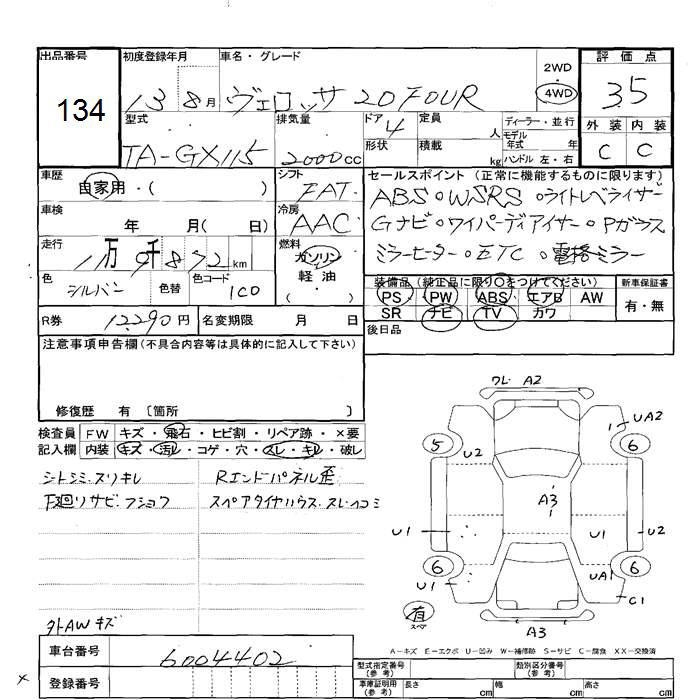 出品番号 初度登録年月 車名・グレード 2WD・4WD 評価点
134 13 8月 ヴェロッサ 20FOUR 3.5
外装 内装
C C
型式 排気量 ドア 定員 ディーラー・並行
TA-GX115 2000cc 4 人 モデル年式 年
形状 積載 kg ハンドル 左・右
車歴 自家用・( ) シフト FAT
セールスポイント (正常に機能するものに限ります)
ABS。WSRS。ライトレベライザー
Gナビ。ワイパーディアイサー。Pガラス
ミラーヒーター。ETC。電格ミラー
車検 年 月( 日) 冷房 AAC
走行 1万 9千872km 燃料 ガソリン・軽油( )
色 シルバン 色替 色コード 1C0
装備品 (純正品に限り〇をつけてください) 新車保証書
PS PW ABS エアB AW 有・無
SR ナビ TV カワ
R券 12,290円 名変期限 月 日
後日品
注意事項申告欄(不具合内容等は具体的に記入して下さい)
修復歴 有 〔箇所 〕
検査員記入欄 FW キズ・飛石・ヒビ割・リペア跡・×要
内装 キズ・汚レ・コゲ・穴・スレ・キレ・破レ
シトシミ.スリキレ Rエンドパネル歪
下廻りサビ.フショク スペアタイヤハウス.スレヘコミ
外AWキズ
ワレ A2
UA2
5 6
U2
A3
U1 U1 U2
6 6
U1 UA1
C1
有
スペア
A3
A-キズ E-エクボ U-凹み W-補修跡 S-サビ C-腐食 XX-交換済
車台番号 6004402
登録番号
型式指定番号(参考) 類別区分番号(参考)
車庫証明用(参考) 長さ cm 幅 cm 高さ cm
×